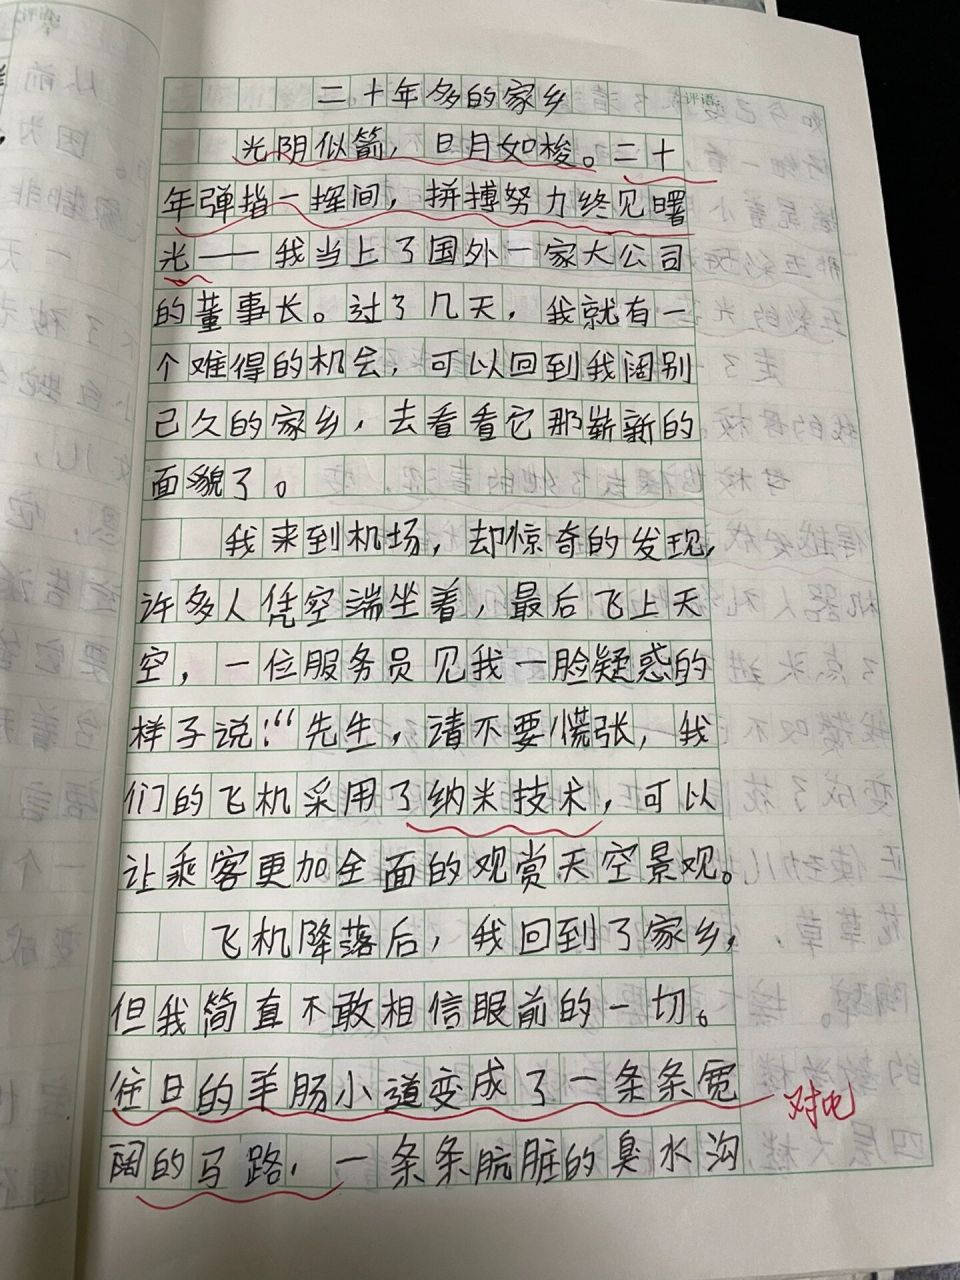 二十年多的家乡
评语:
光阴似箭，日月如梭。二十
年弹指一挥间，拼搏努力终见曙
光——我当上了国外一家大公司
的董事长。过了几天，我就有一
个难得的机会，可以回到我阔别
已久的家乡，去看看它那崭新的
面貌了。
我来到机场，却惊奇的发现，
许多人凭空端坐着，最后飞上天
空，一位服务员见我一脸疑惑的
样子说：“先生，请不要慌张，我
们的飞机采用了纳米技术，可以
让乘客更加全面的观赏天空景观。
飞机降落后，我回到了家乡，
但我简直不敢相信眼前的一切。
往日的羊肠小道变成了一条条宽
对比
阔的马路，一条条肮脏的臭水沟